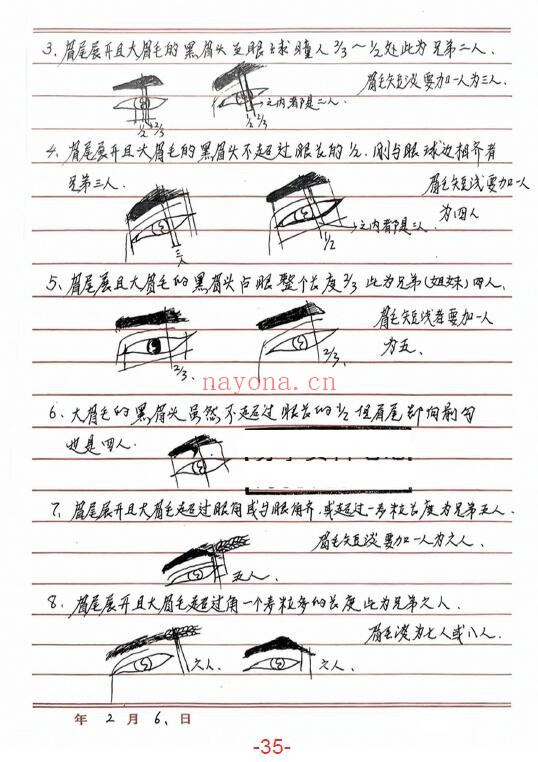 3、眉尾展开且大眉毛的黑眉头至眼球瞳人2/3～1/2处此为兄弟二人.
眉毛短浅要加一人为三人.
1/2 2/3
之内都是二人.
4、眉尾展开且大眉毛的黑眉头不超过眼长的1/2.刚与眼球边相齐者
兄弟三人.
眉毛短浅要加一人
为四人
三人
1/2
之内都是三人.
5、眉尾展且大眉毛的黑眉头占眼整个长度2/3此为兄弟(姐妹)四人.
眉毛短浅者要加一人
为五、
2/3、
2/3
nayona.cn
6、大眉毛的黑眉头虽然不超过眼长的1/2但眉尾却向前勾
也是四人.
7、眉尾展开且大眉毛超过眼角或与眼角齐,或超过一麦粒长度为兄弟五人.
眉毛短淡要加一人为六人、
五人、
8、眉尾展开且大眉毛超过角一个麦粒多的长度此为兄弟六人.
眉毛淡为七人或八人.
六人
六人、
年 2 月 6、日
-35-